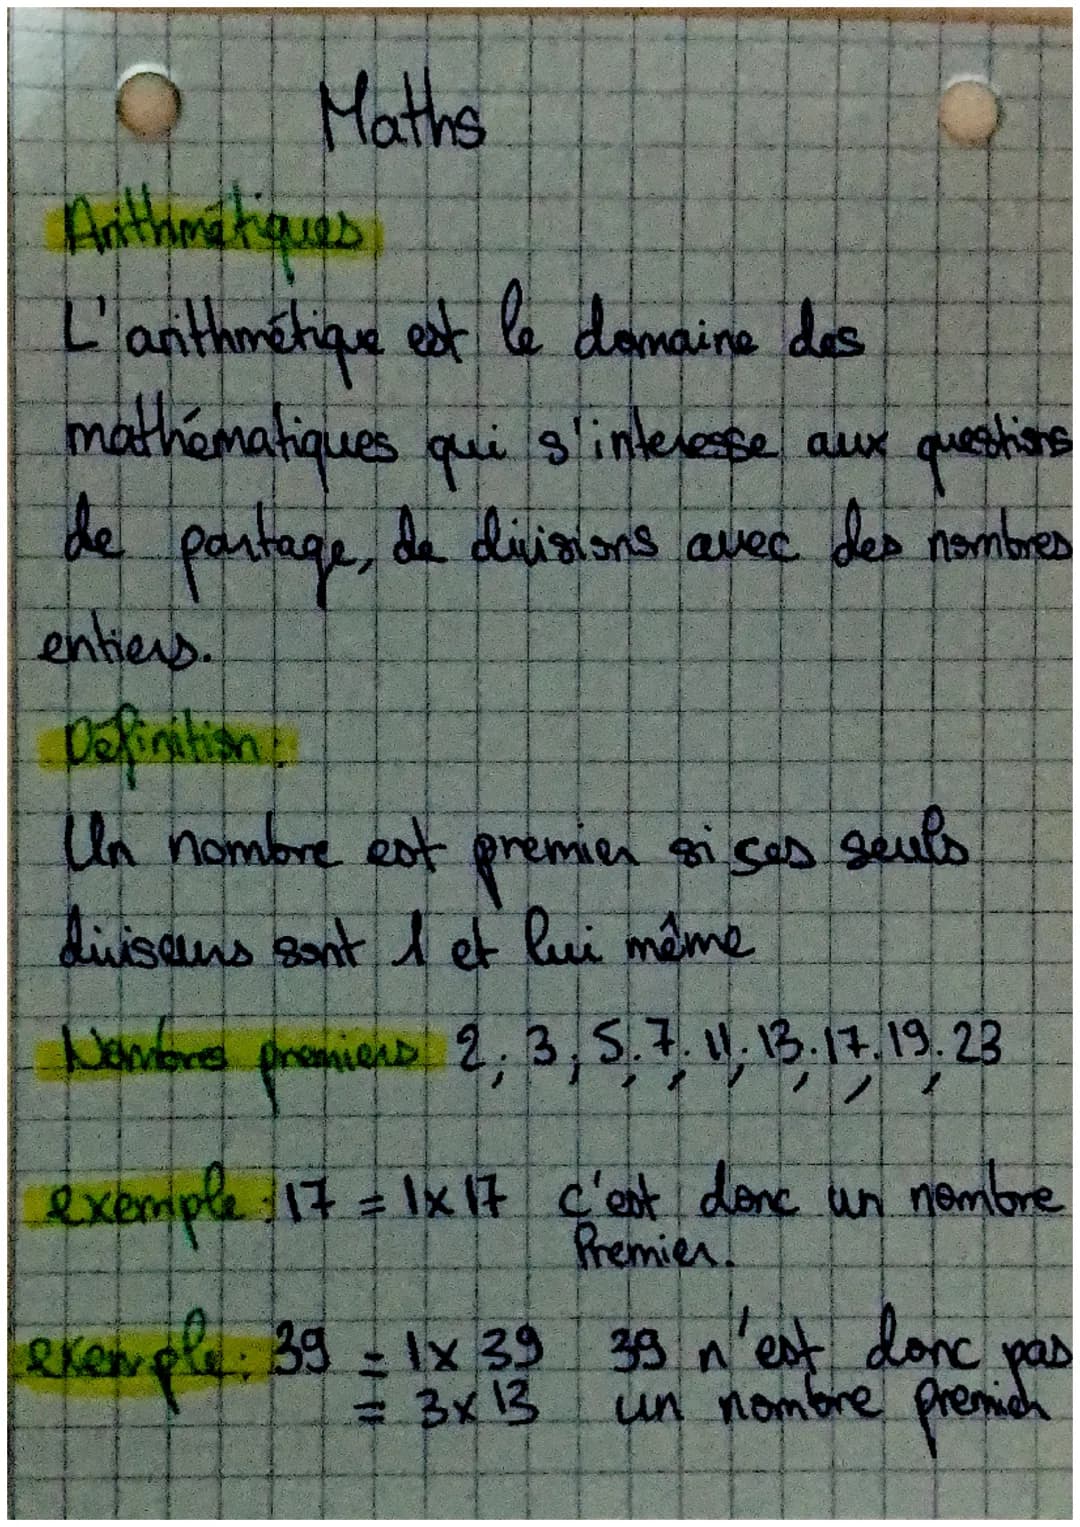 Maths
Arithmétiques
L'arithmétique est le domaine des
mathématiques qui s'interesse aux questions
de partage, de divisions avec des nombres
entiers.
Définition:
Un nombre est premier si ses seuls
diviseurs sont 1 et lui même
Nombres premiers 2; 3; 5; 7; 11; 13; 17; 19; 23
exemple: 17 = 1x17 c'est donc un nombre
Premier.
exemple: 39 = 1x 39 39 n'est donc pas
= 3x13 un nombre premier